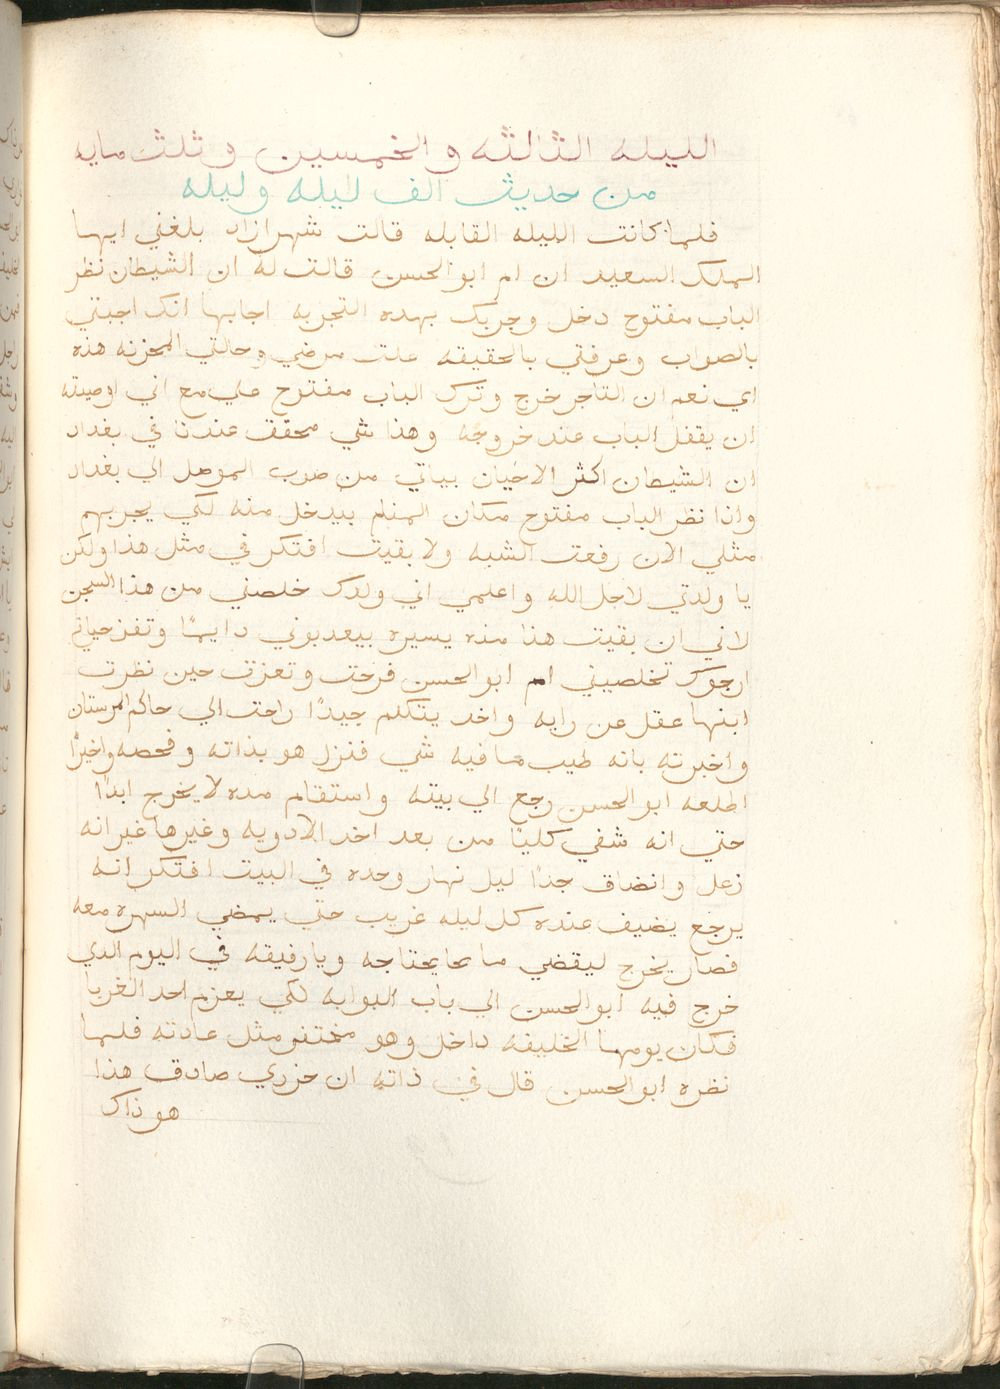 الليله الثالثه والخمسين وثلث مايه
من حديث الف ليله وليله
فلما كانت الليله القابله قالت شهرازاد بلغني ايها
الملك السعيد ان ام ابو الحسن قالت له ان الشيطان نظر
الباب مفتوح دخل وجربك بهده التجربه اجابها انك اجبتي
بالصواب وعرفتي بالحقيقه علت مرضي وحالتي المحزنه هذه
اي نعم ان التاجر خرج وترك الباب مفتوح علي مع اني اوصيته
ان يقفل الباب عند خروجه وهذا شي محقق عندنا في بغداد
ان الشيطان اكثر الاحيان بياتي من صوب الموصل الي بغداد
واذا نظر الباب مفتوح مكان المنام بيدخل منه لكي يجربهم
مثلي الان رفعت الشبه ولا بقيت افتكر في مثل هذا ولكن
يا ولدتي لاجل الله واعلمي اني ولدك خلصني من هذا السجن
لاني ان بقيت هنا مده يسيره بيعدبوني دايمًا وتفز حياتي
ارجوك تخلصيني ام ابو الحسن فرحت وتعزت حين نظرت
ابنها عقل عن رايه واخد يتكلم جيدًا راحت الي حاكم المرستان
واخبرته بانه طيب ما فيه شي فنزل هو بذاته وفحصه واخيرًا
اطلعه ابو الحسن رجع الي بيته واستقام مده لا يخرج ابدًا
حتي انه شفي كليًا من بعد اخد الادويه وغيرها غير انه
زعل وانضاق جدًا ليل نهار وحده في البيت افتكر انه
يرجع يضيف عنده كل ليله غريب حتي يمضي السهره معه
فصار يخرج ليقضي ما يحتاجه ويا رفيقه في اليوم الدي
خرج فيه ابو الحسن الي باب البوابه لكي يعزم احد الغربا
فكان يومها الخليفه داخل وهو مختفي مثل عادته فلما
نظره ابو الحسن قال في ذاته ان حزري صادق هذا
هو ذاك